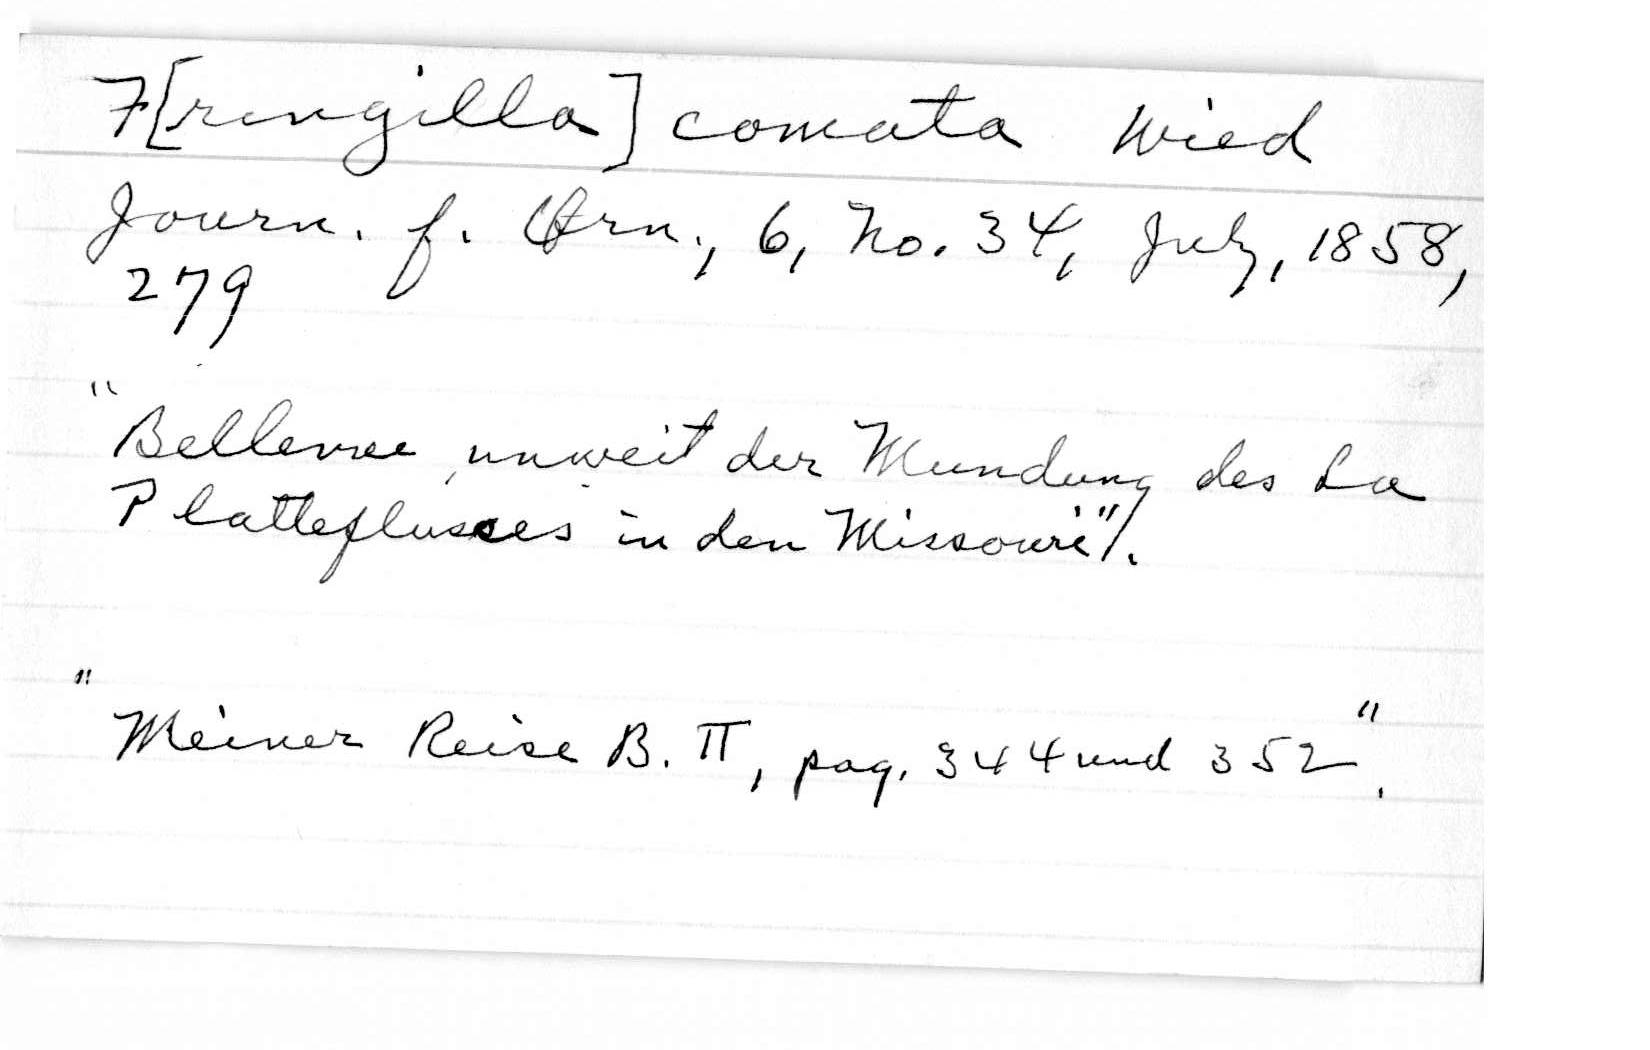 F[ringilla] comata Wied
Journ. f. Orn., 6, No. 34, July, 1858,
279
"Bellevue, unweit der Mundung des La
Platteflusses in den Missouri".
"Meiner Reise B. II, pag. 344 und 352".